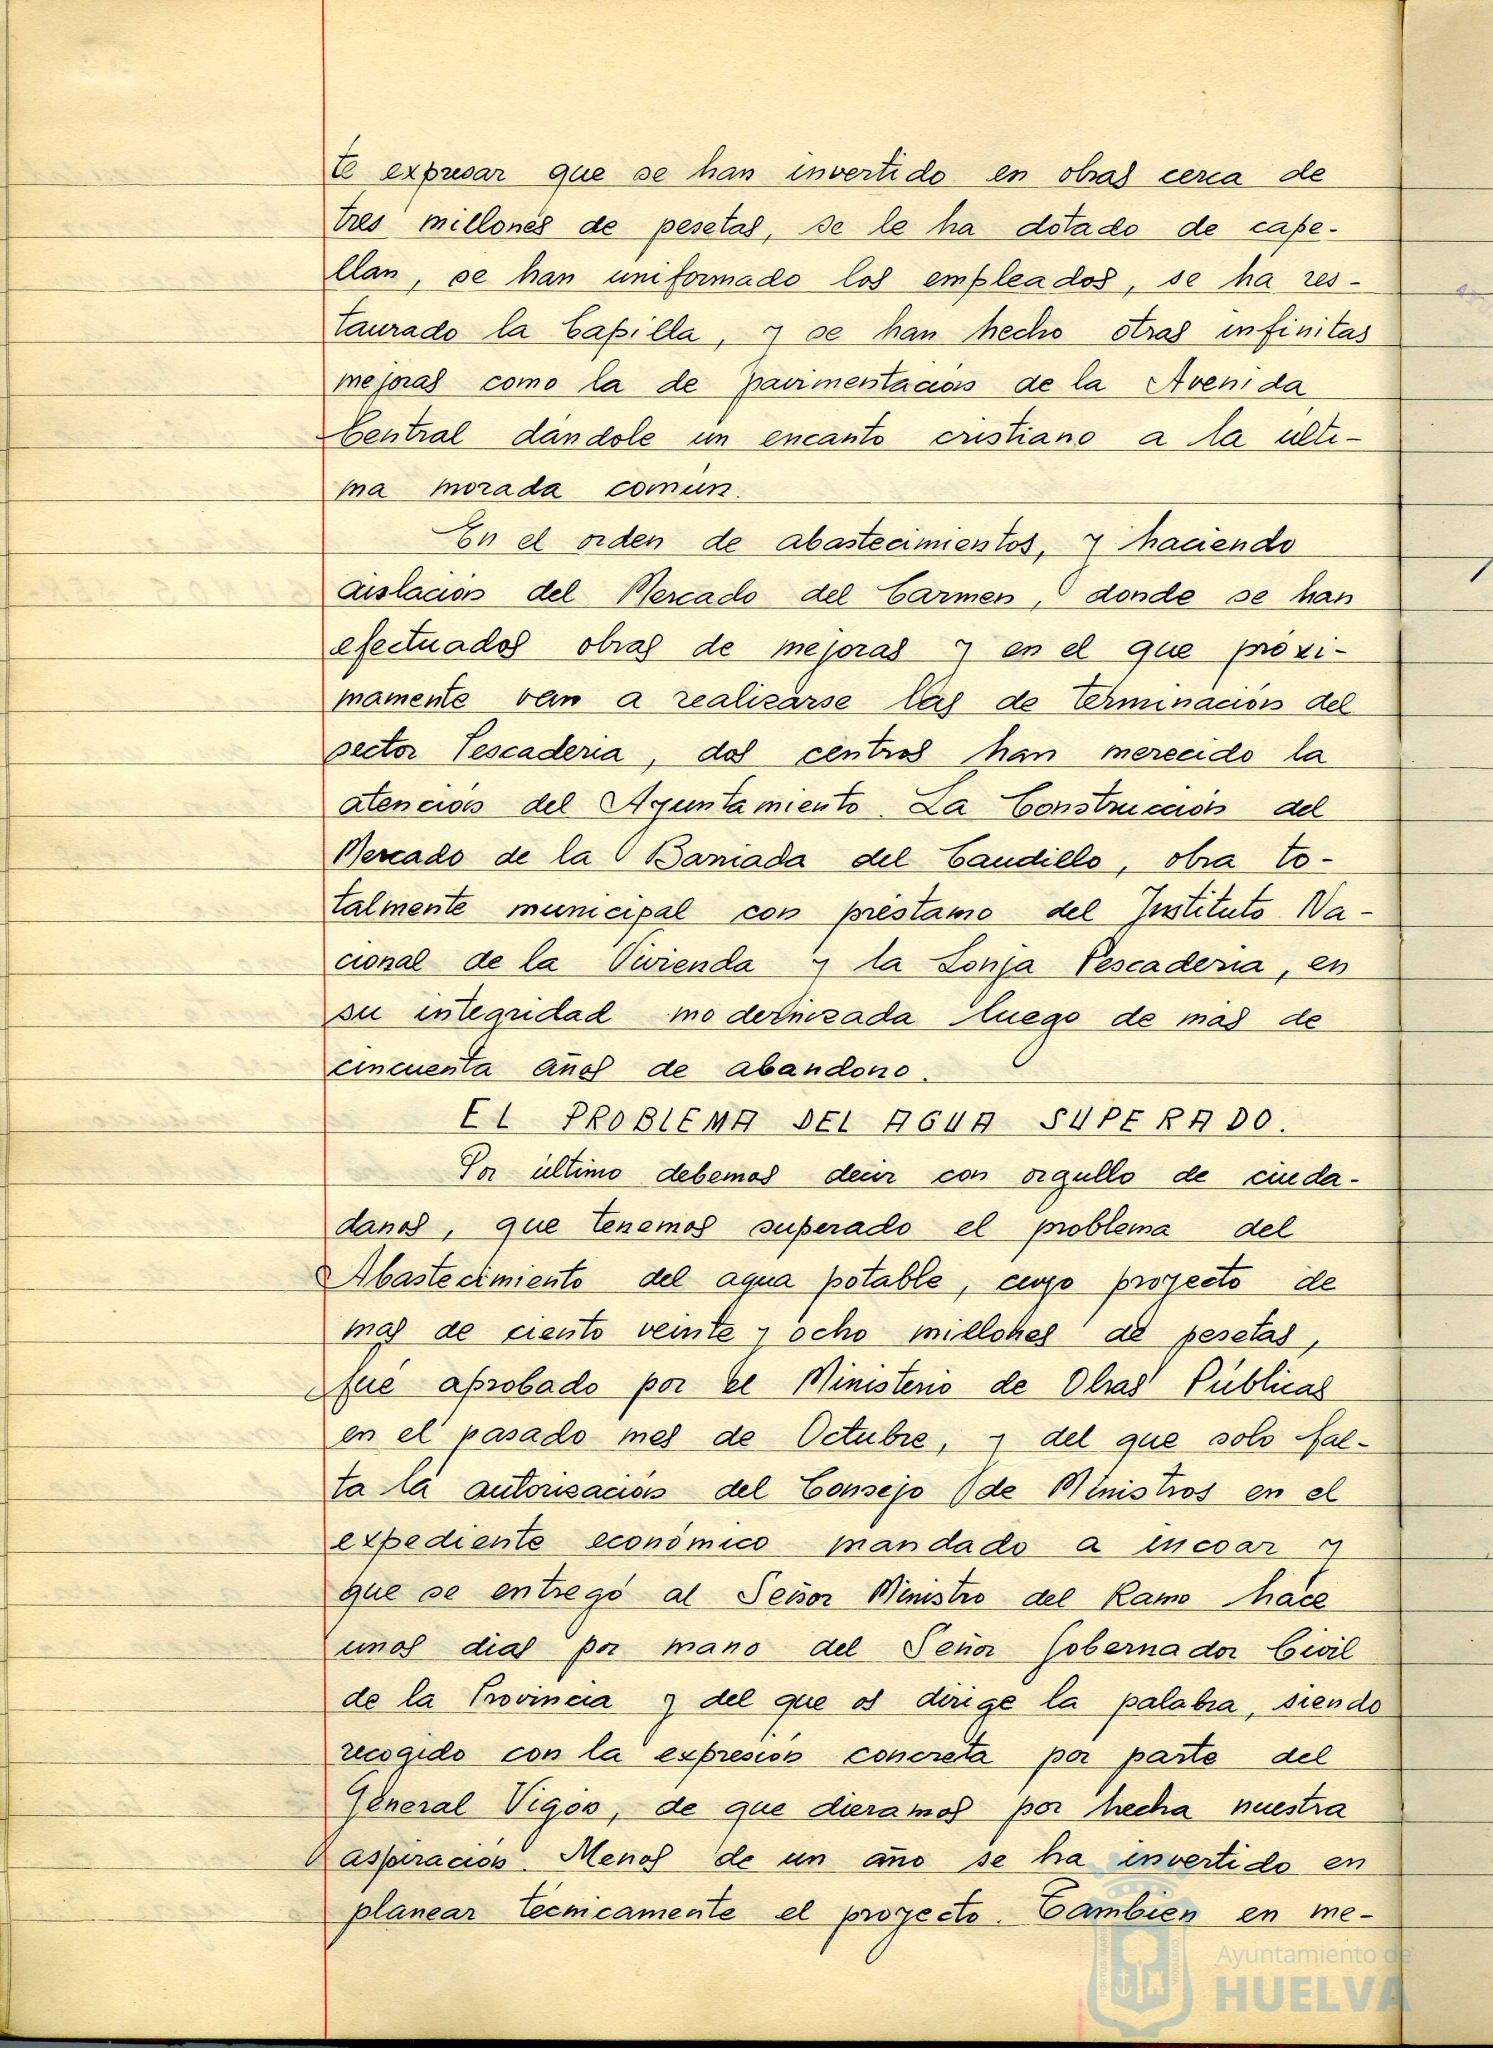 te expresar que se han invertido en obras cerca de
tres millones de pesetas, se le ha dotado de cape-
llan, se han uniformado los empleados, se ha res-
taurado la Capilla, y se han hecho otras infinitas
mejoras como la de pavimentación de la Avenida
Central dándole un encanto cristiano a la últi-
ma morada común.
En el orden de abastecimientos, y haciendo
aislación del Mercado del Carmen, donde se han
efectuados obras de mejoras y en el que próxi-
mamente van a realizarse las de terminación del
sector Pescaderia, dos centros han merecido la
atención del Ayuntamiento. La Construcción del
Mercado de la Barriada del Caudillo, obra to-
talmente municipal con préstamo del Instituto Na-
cional de la Vivienda y la Lonja Pescaderia, en
su integridad modernizada luego de mas de
cincuenta años de abandono.
EL PROBLEMA DEL AGUA SUPERADO.
Por último debemos decir con orgullo de ciuda-
danos, que tenemos superado el problema del
Abastecimiento del agua potable, cuyo proyecto de
mas de ciento veinte y ocho millones de pesetas,
fué aprobado por el Ministerio de Obras Públicas
en el pasado mes de Octubre, y del que solo fal-
ta la autorización del Consejo de Ministros en el
expediente económico mandado a incoar y
que se entregó al Señor Ministro del Ramo hace
unos dias por mano del Señor Gobernador Civil
de la Provincia y del que os dirige la palabra, siendo
recogido con la expresión concreta por parte del
General Vigón, de que dieramos por hecha nuestra
aspiración. Menos de un año se ha invertido en
planear técnicamente el proyecto. Tambien en me-
Ayuntamiento de
HUELVA